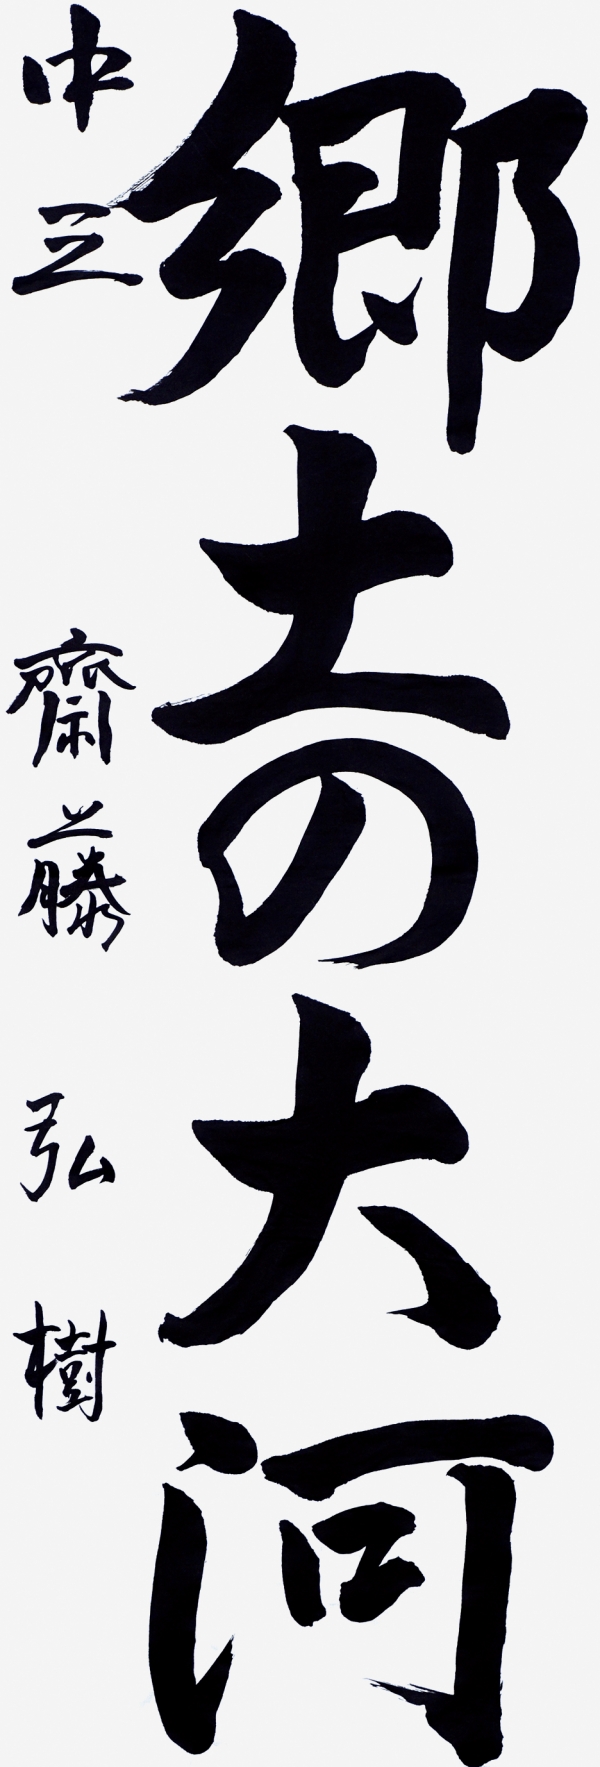 郷土の大河
中三 齋藤弘樹